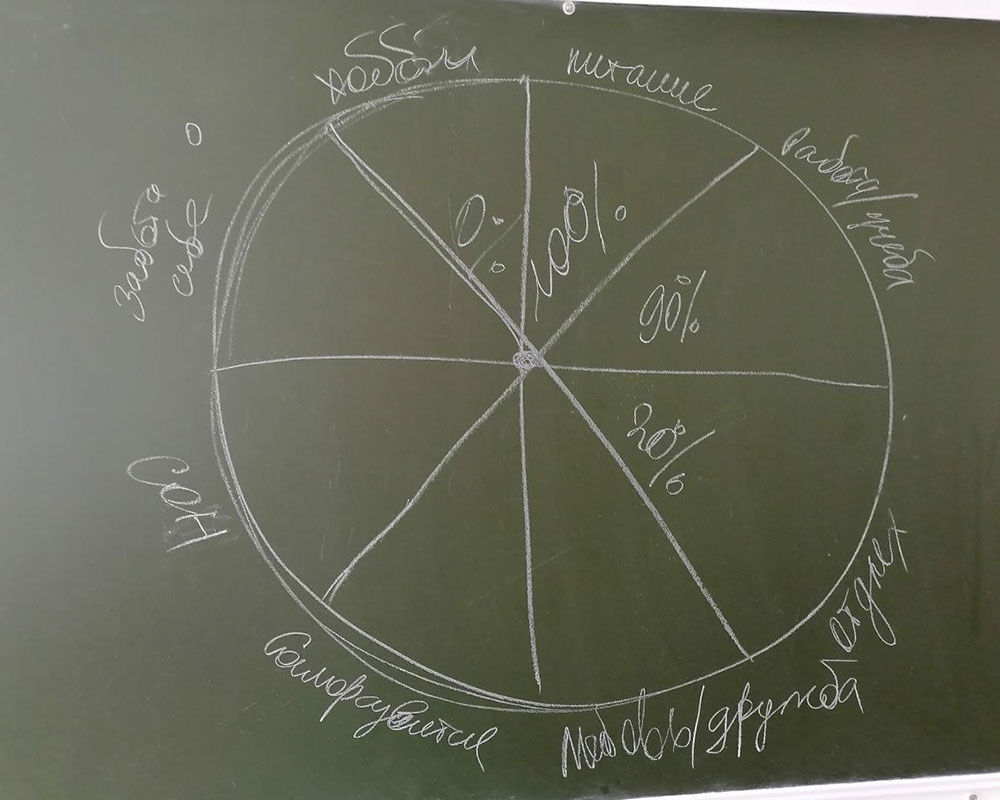 хобби
питание
работа/учеба
отдых
любовь/дружба
Саморазвитие
сон
забота о
себе
0%
100%
90%
20%